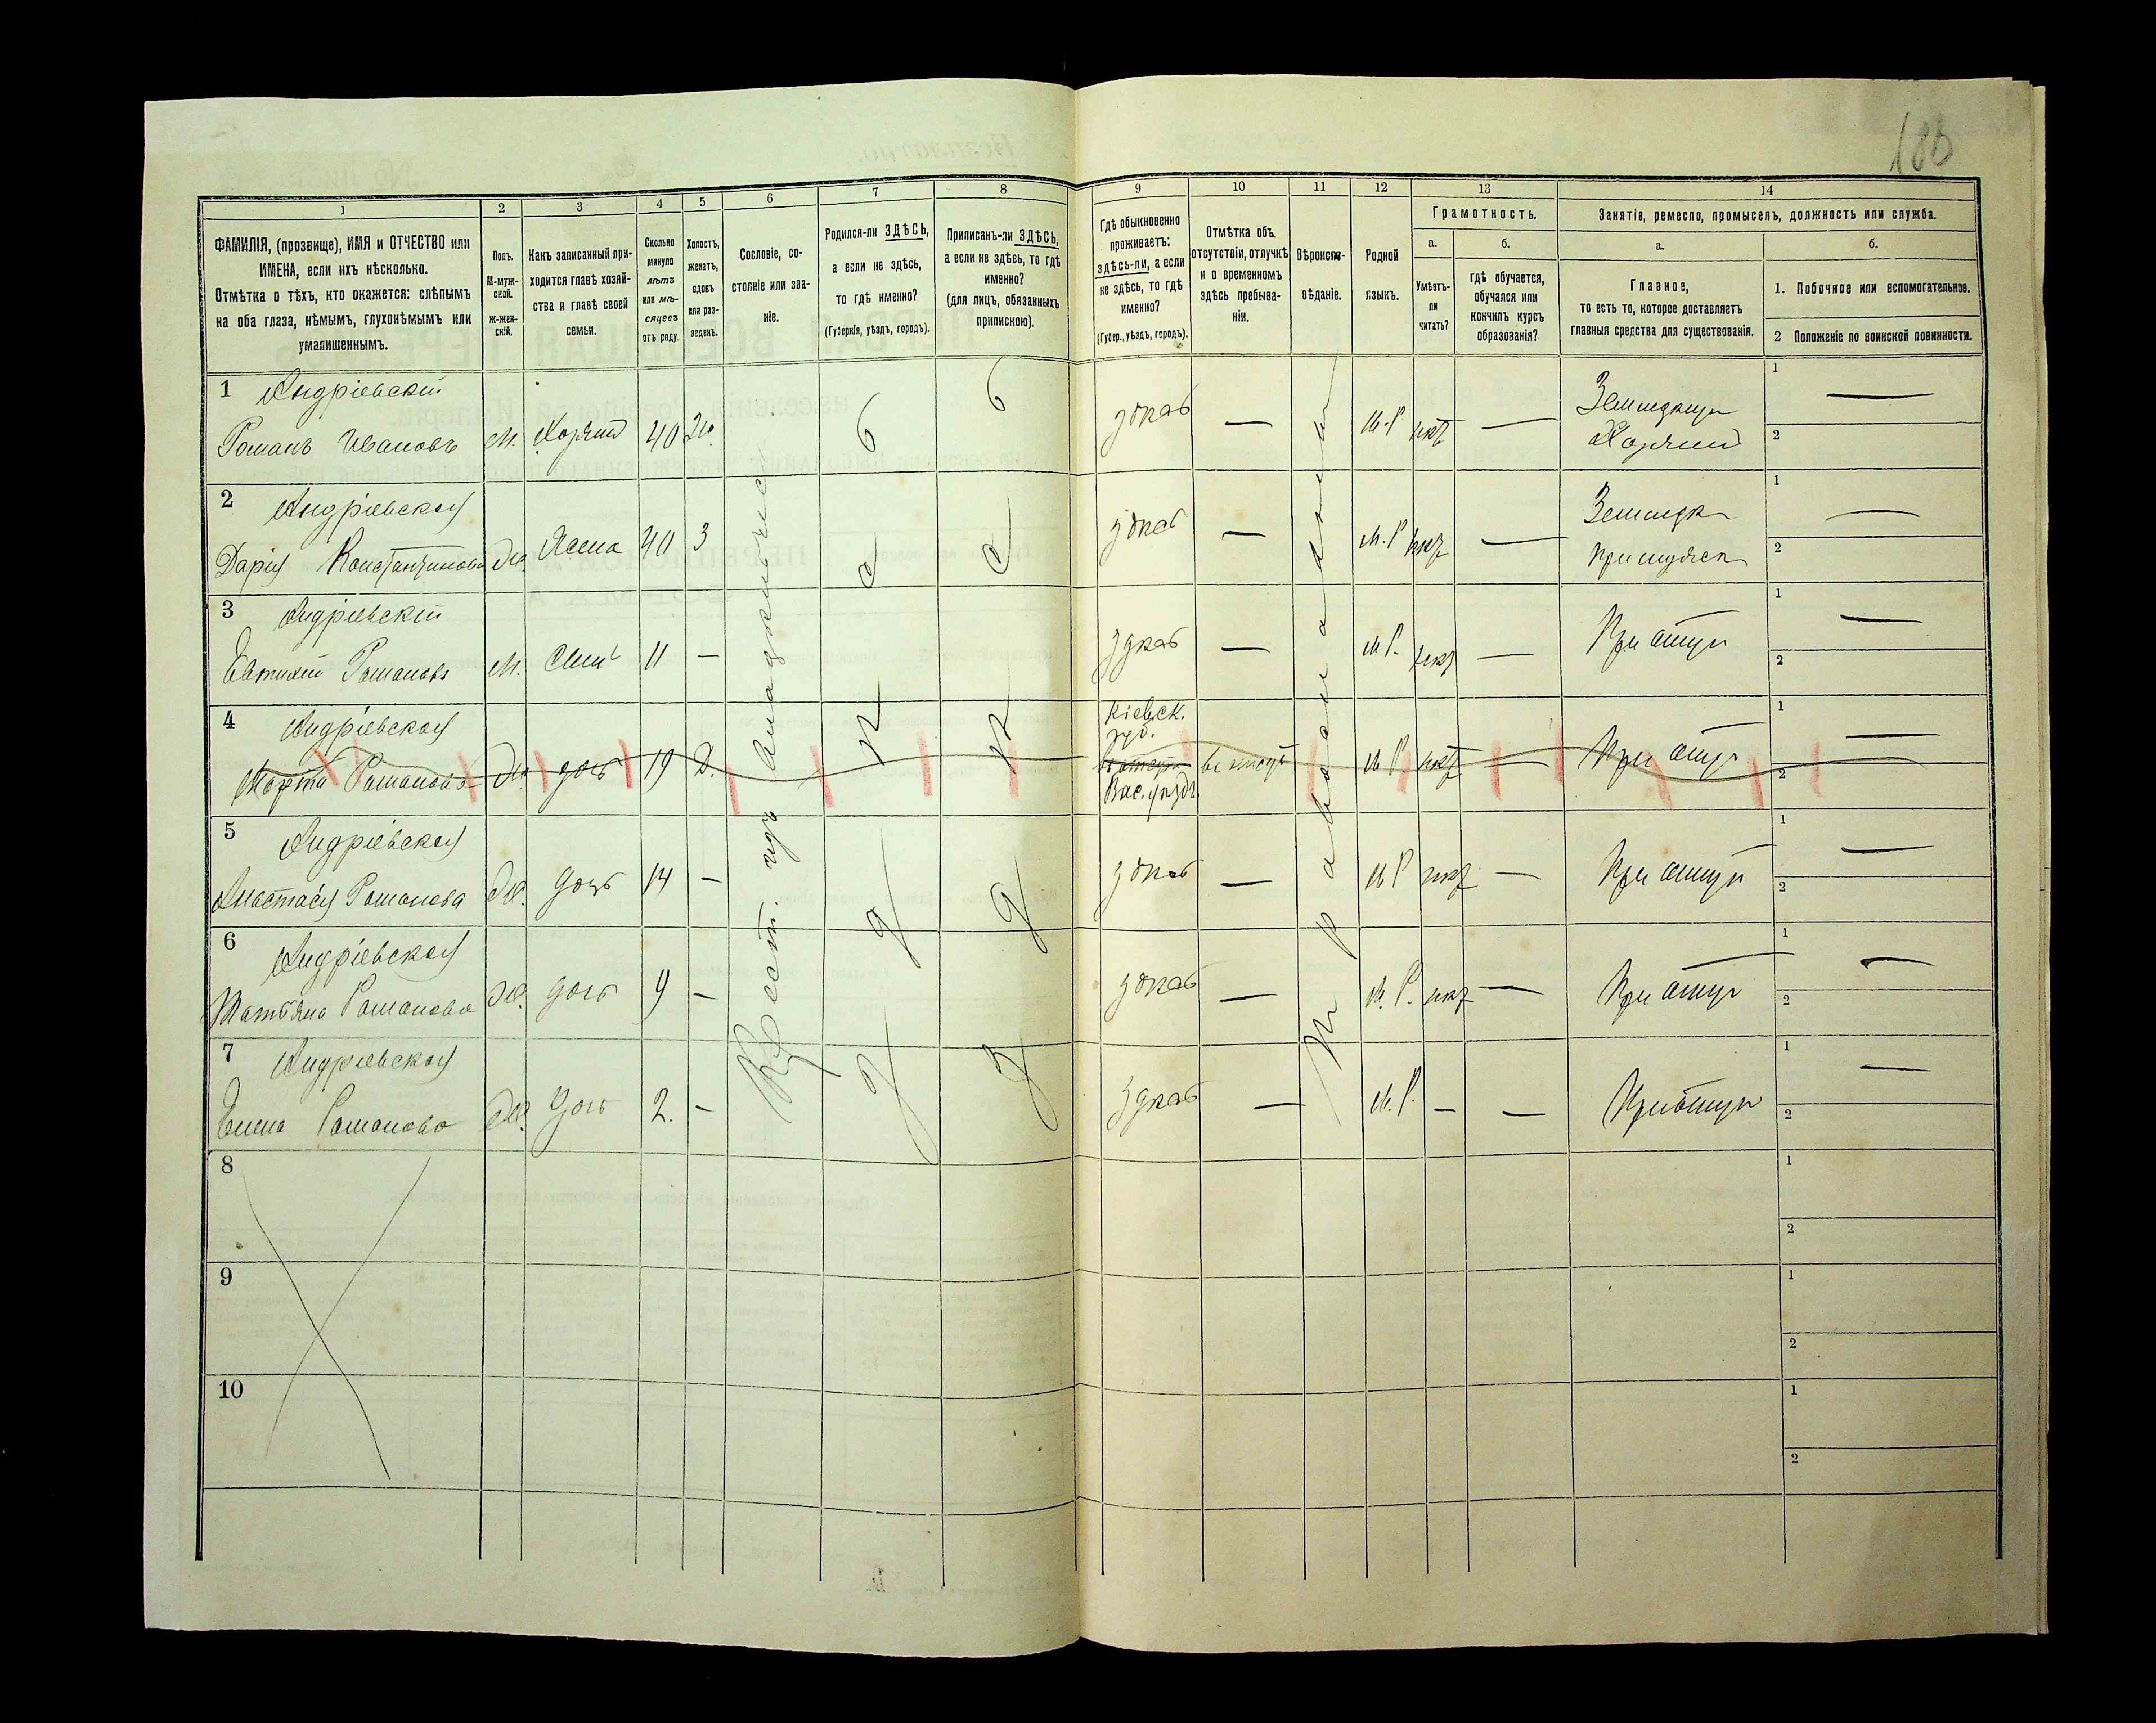 180
1 2 3 4 5 6 7 8 9 10 11 12 13 14
ФАМИЛІЯ, (прозвище), ИМЯ и ОТЧЕСТВО или
ИМЕНА, если ихъ нѣсколько.
Отмѣтка о тѣхъ, кто окажется: слѣпымъ
на оба глаза, нѣмымъ, глухонѣмымъ или
умалишеннымъ.
Полъ.
М-муж-
ской.
Ж-жен-
скій.
Какъ записанный при-
ходится главѣ хозяй-
ства и главѣ своей
семьи.
Сколько
минуло
лѣтъ
или мѣ-
сяцевъ
отъ роду.
Холостъ,
женатъ,
вдовъ
или раз-
веденъ.
Сословіе, со-
стояніе или зва-
ніе.
Родился-ли ЗДѢСЬ,
а если не здѣсь,
то гдѣ именно?
(Губернія, уѣздъ, городъ).
Приписанъ-ли ЗДѢСЬ,
а если не здѣсь, то гдѣ
именно?
(для лицъ, обязанныхъ
припискою).
Гдѣ обыкновенно
проживаетъ:
здѣсь-ли, а если
не здѣсь, то гдѣ
именно?
(Губер., уѣздъ, городъ).
Отмѣтка объ
отсутствіи, отлучкѣ
и о временномъ
здѣсь пребыва-
ніи.
Вѣроиспо-
вѣданіе.
Родной
языкъ.
Грамотность.
а.
Умѣетъ-
ли
читать?
б.
Гдѣ обучается,
обучался или
кончилъ курсъ
образованія?
Занятія, ремесло, промыселъ, должность или служба.
а.
Главное,
то есть то, которое доставляетъ
главныя средства для существованія.
б.
1. Побочное или вспомогательное.
2 Положеніе по воинской повинности.
1 Андріевскій
Романъ Ивановъ М. Хозяин 40 Ж. здесь — М.Р нет —
Хозяин
1 —
2
2 Андріевская
Дарія Константинова Ж. Жена 40 З здесь — М.Р нет —
1 —
2
3 Андріевскій
Евтихій Романовъ М. Сынъ 11 — здесь — М.Р. нет — При отцу
1 —
2
4 Андріевская
Кіевск.
губ.
Марта Романова Ж. дочь 19 Д. М.Р. нет — При отцу
Вас. уѣздъ
1 —
2
5 Андріевская
Анастасія Романова Ж. дочь 14 — здесь — М.Р нет — При отцу
1 —
2
6 Андріевская
Татьяна Романова Ж. дочь 9 — здесь — М.Р. нет — При отцу
1 —
2
7 Андріевская
Елена Романова Ж. дочь 2. — здесь — М.Р. — — При отцу
1 —
2
Православная
8
1
2
9
1
2
10
1
2